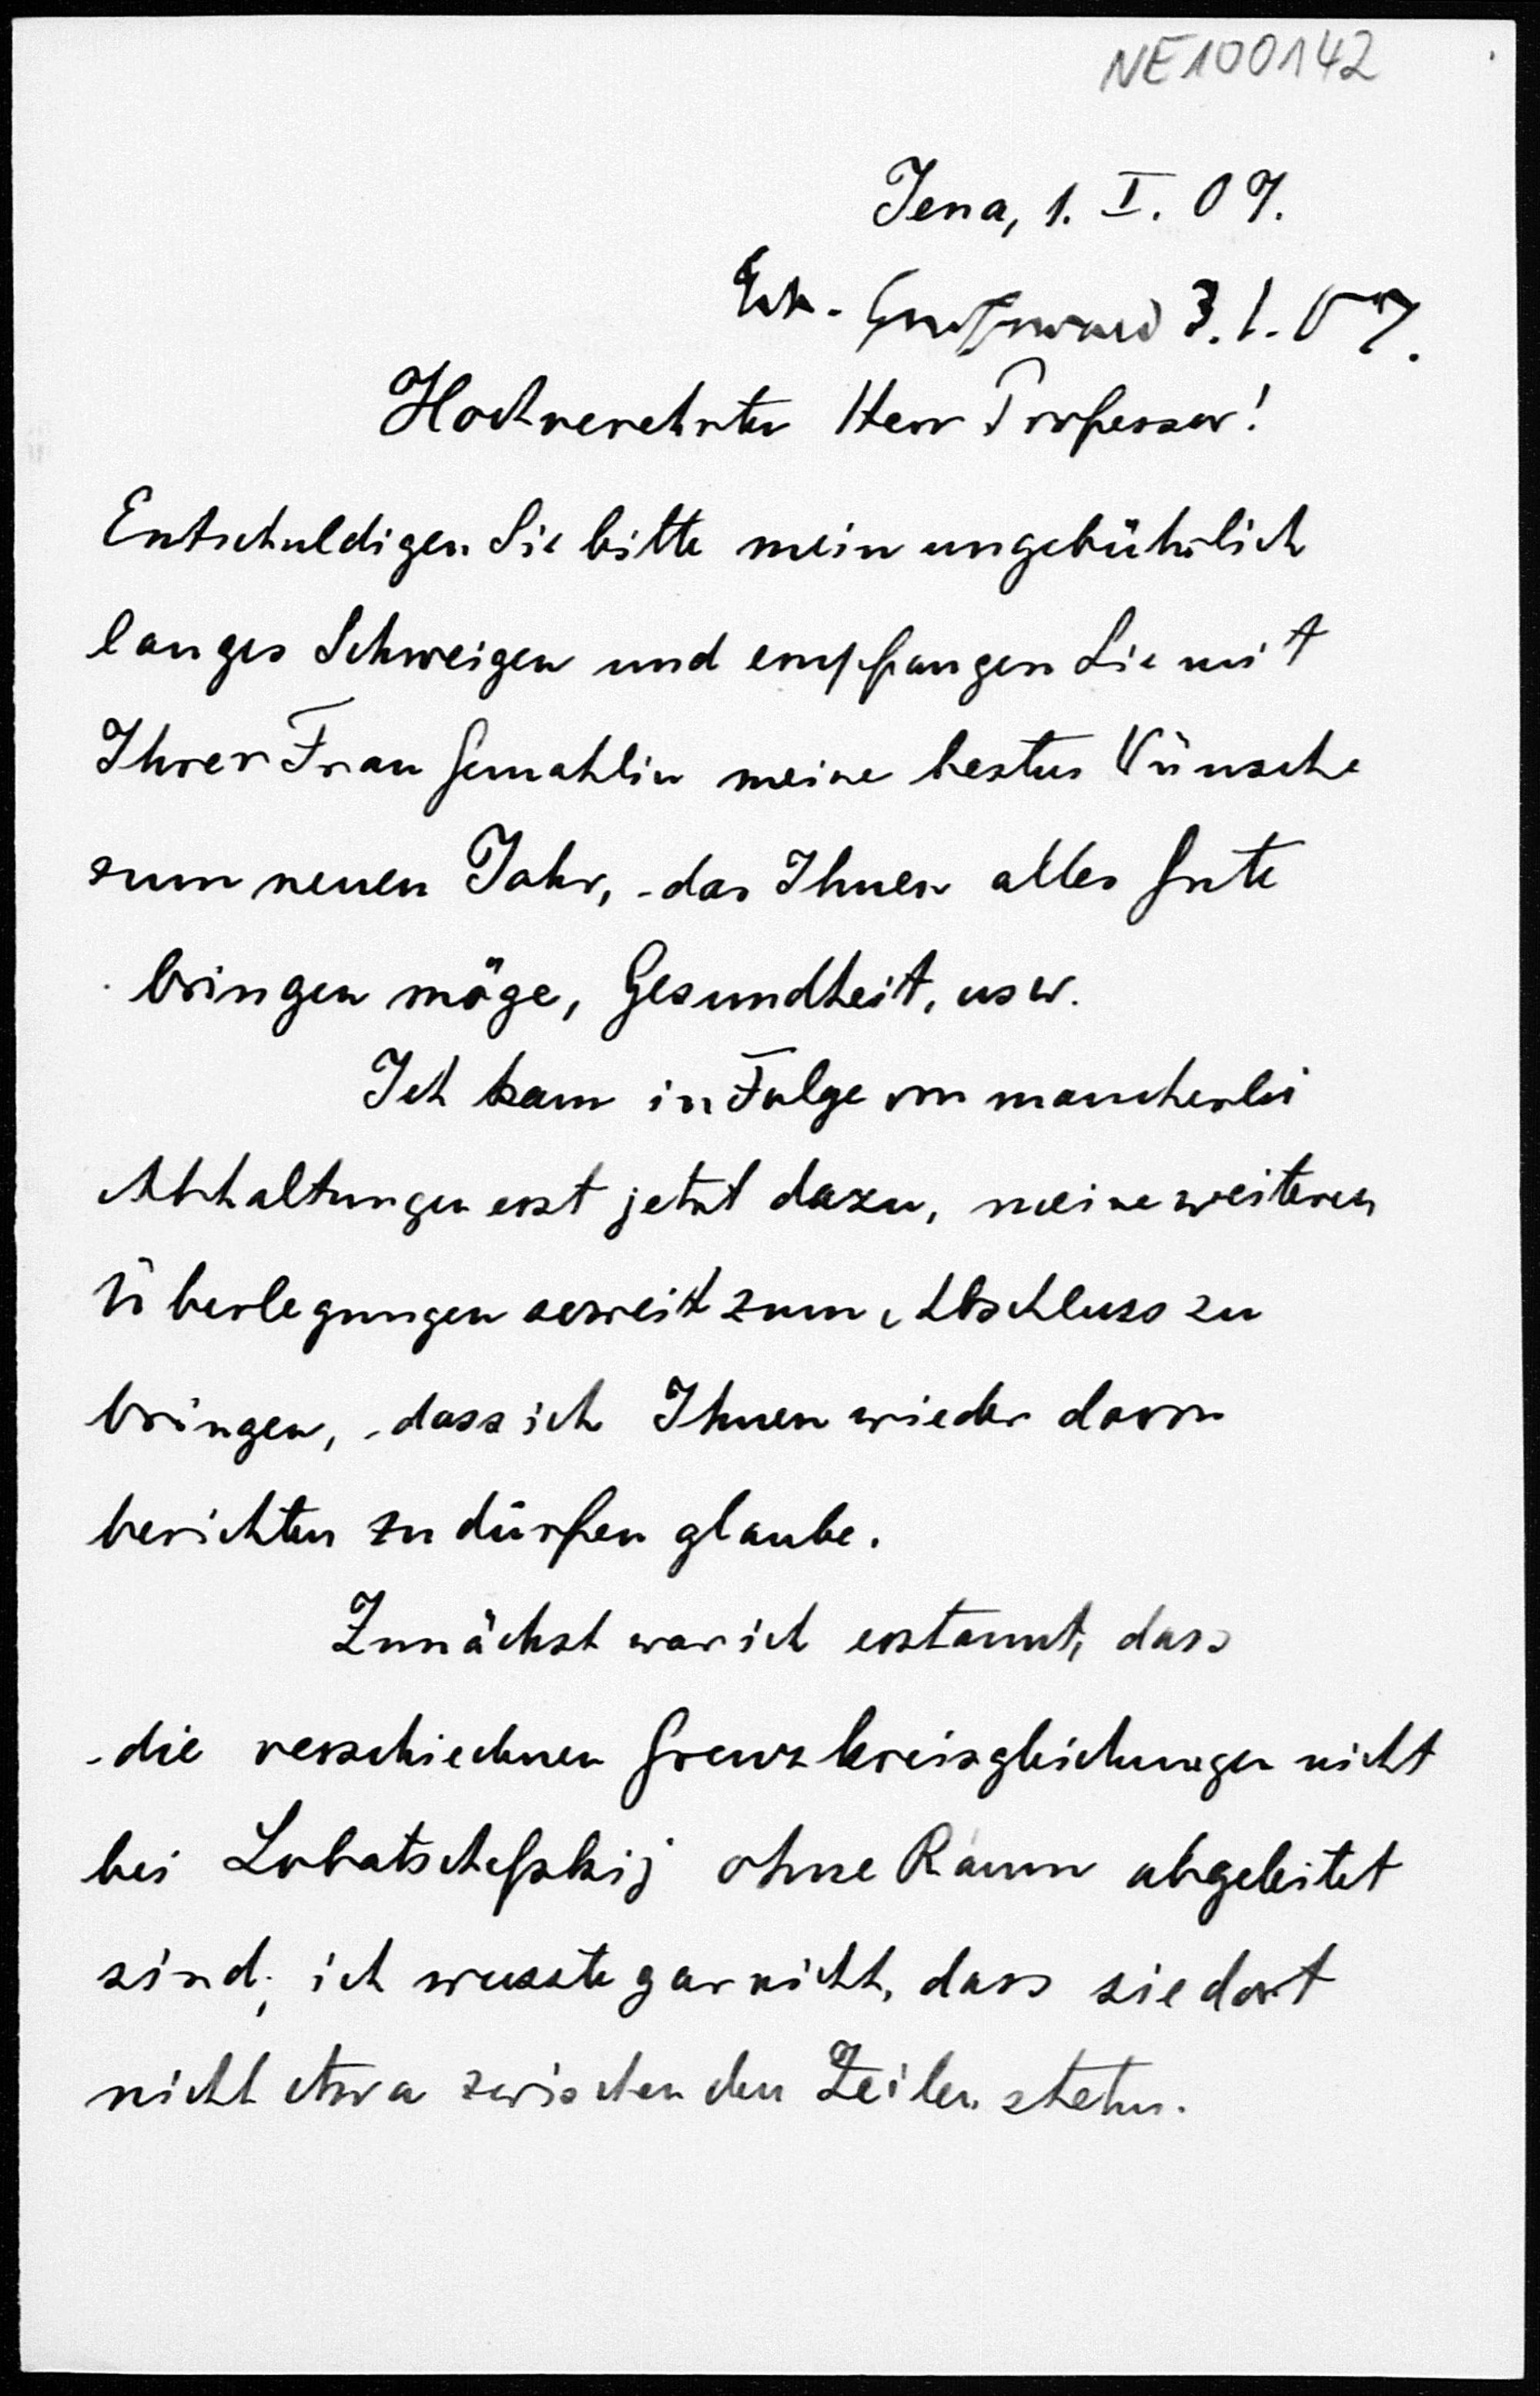 NE100142
Jena, 1. I. 07.
Erh. Greifswald 3.1.07.
Hochverehrter Herr Professor!
Entschuldigen Sie bitte mein ungebührlich
langes Schweigen und empfangen Sie mit
Ihrer Frau Gemahlin meine besten Wünsche
zum neuen Jahr, das Ihnen alles Gute
bringen möge, Gesundheit, usw.
Ich kam in Folge von mancherlei
Abhaltungen erst jetzt dazu, meine weiteren
Überlegungen soweit zum Abschluss zu
bringen, dass ich Ihnen wieder davon
berichten zu dürfen glaube.
Zunächst war ich erstaunt, dass
die verschiednen Grenzkreisgleichungen nicht
bei Lobatschefskij ohne Raum abgeleitet
sind; ich wusste gar nicht, dass sie dort
nicht etwa zwischen den Zeilen stehen.